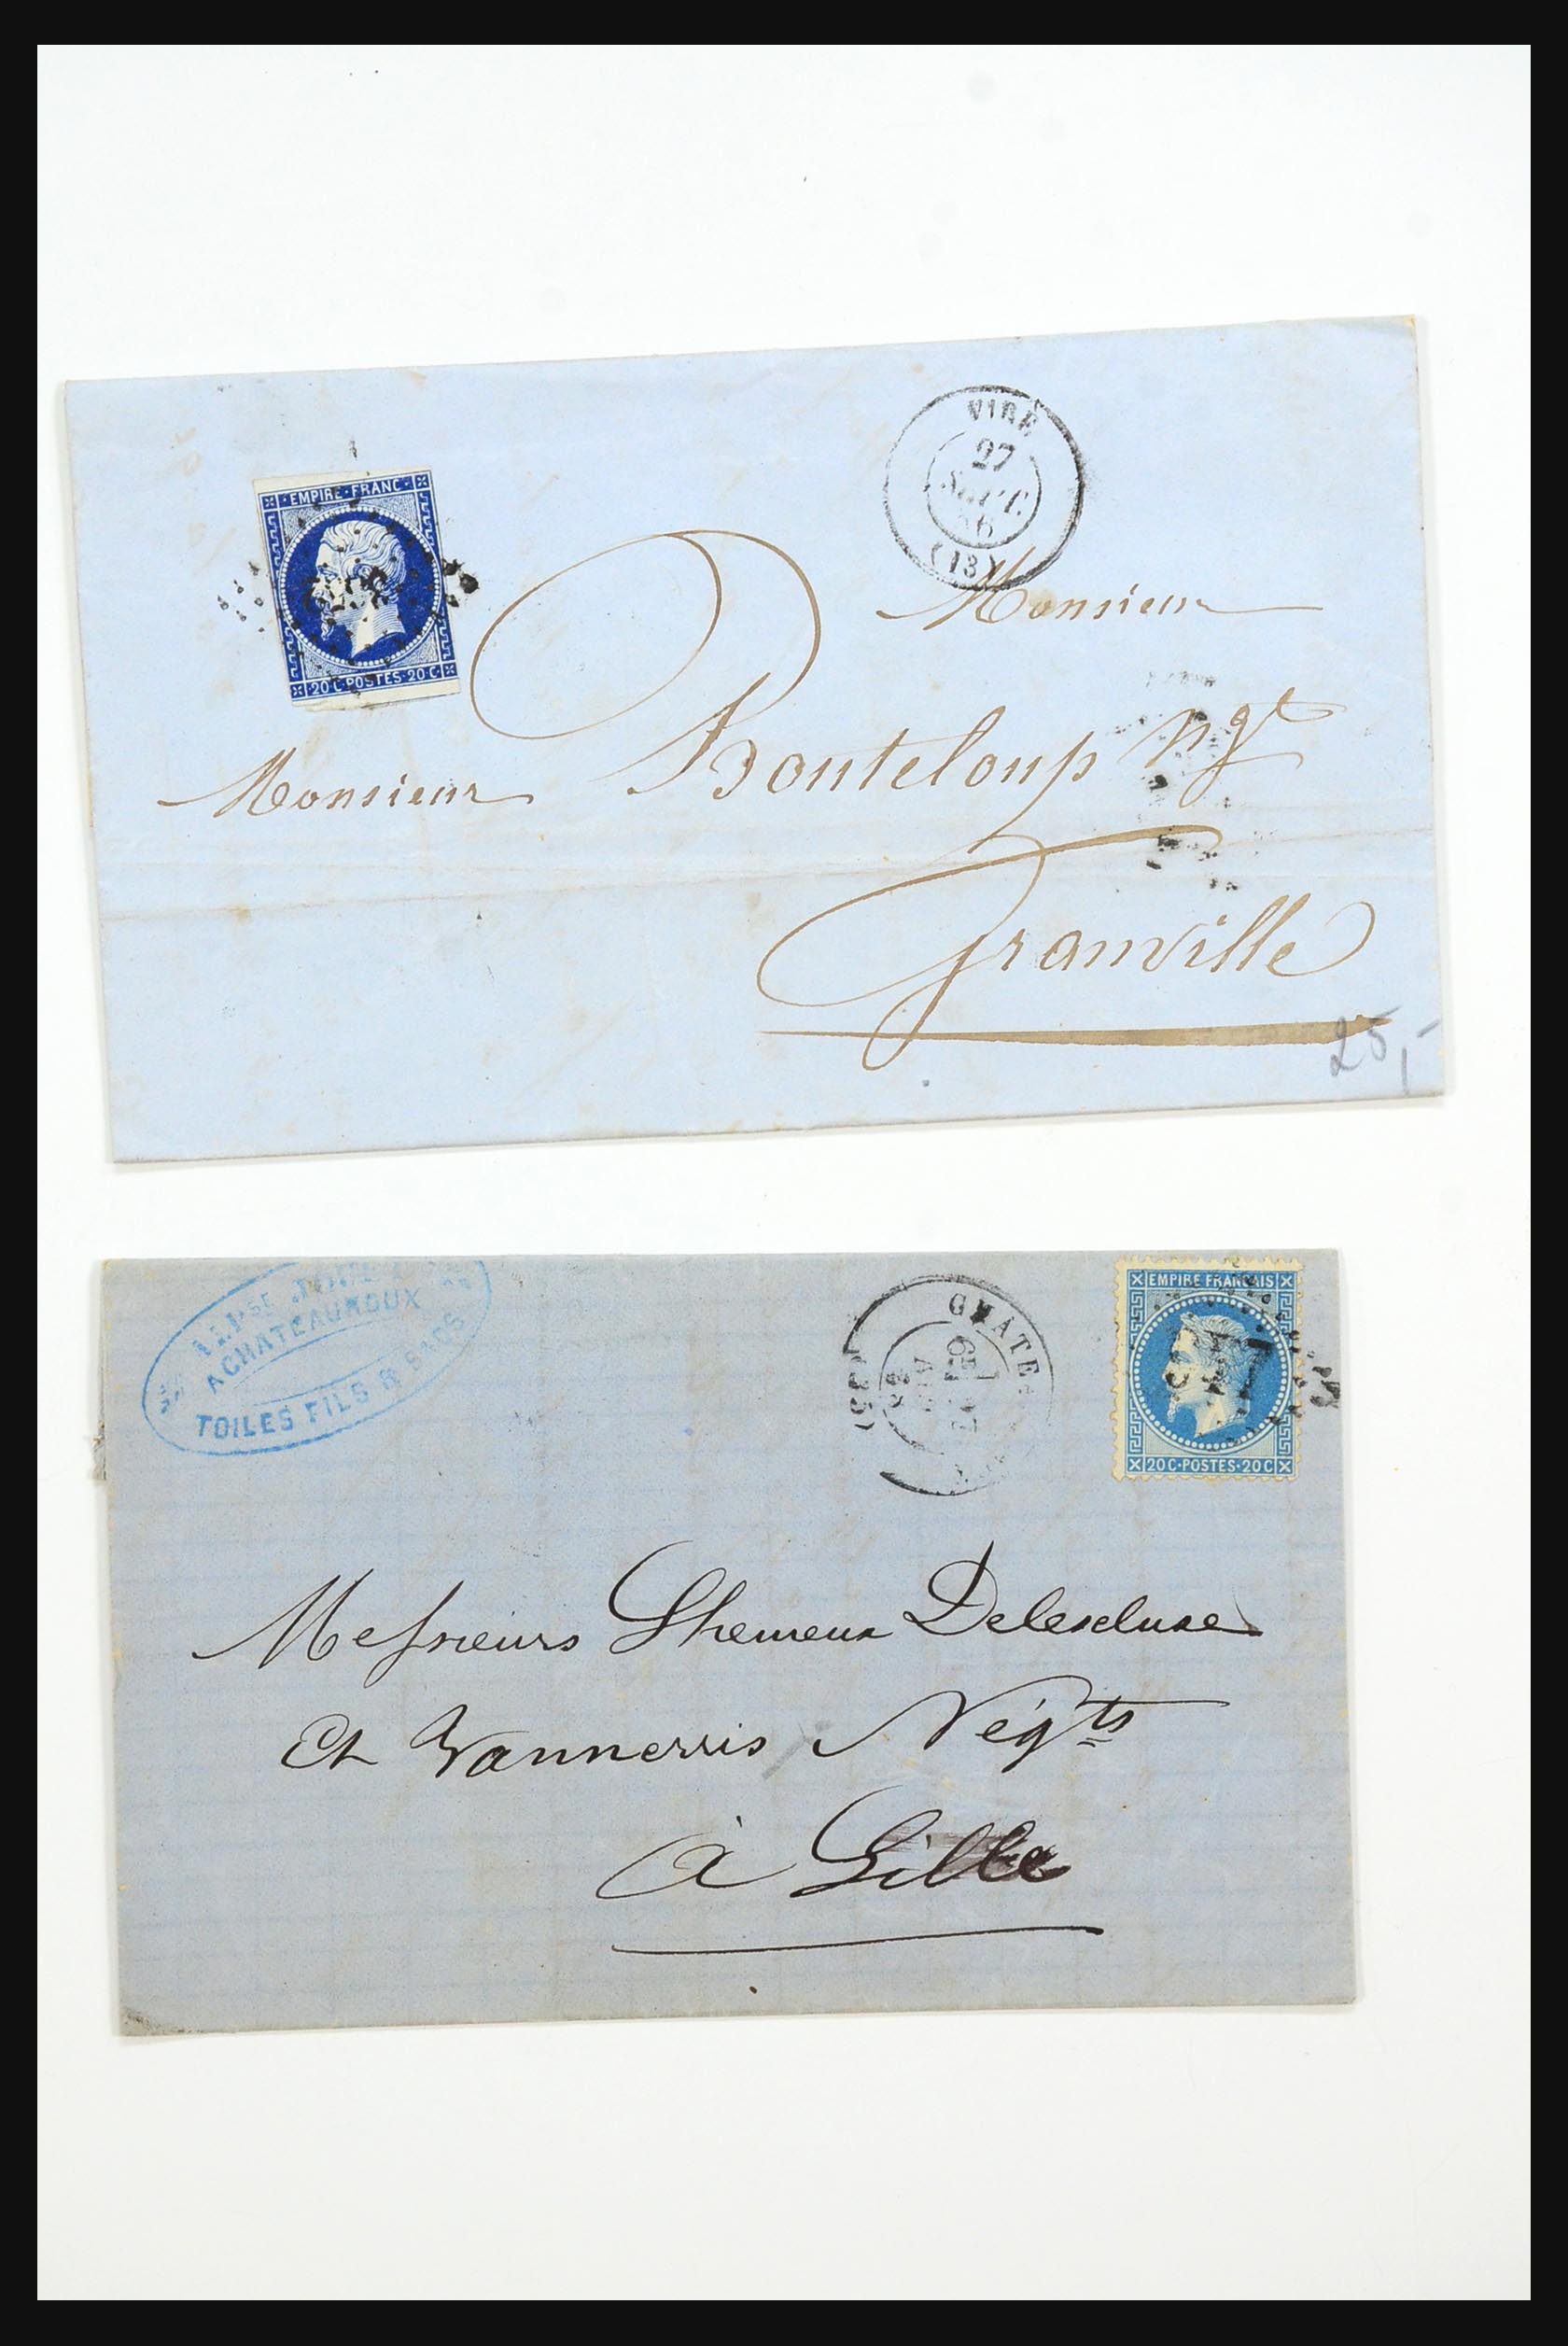 EMPIRE FRANC
20 C. POSTES. 20 C.
VIRE
27
SEPT.
56
(13)
Monsieur
Monsieur Bonteloup Ngt
Granville
25,-
A CHATEAUROUX
TOILES FILS & SACS
CHATE
(35)
EMPIRE FRANÇAIS
20 C. POSTES. 20 C
Messieurs Lhemeux Delescluse
Et Vannerris Négts
à Lille